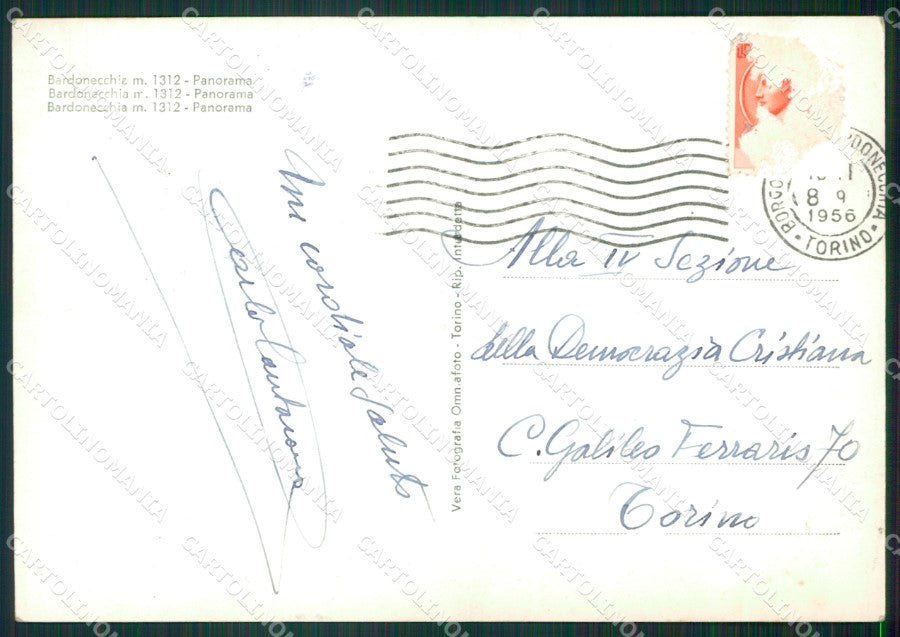 Bardonecchia m. 1312 - Panorama
Bardonecchia m. 1312 - Panorama
Bardonecchia m. 1312 - Panorama
Un cordiale saluto
Carlo
Vera Fotografia Omniafoto - Torino - Rip. Interdetta
BARDONECCHIA
8 9
1956
• TORINO •
Alla IV Sezione
della Democrazia Cristiana
C. Galileo Ferraris 70
Torino
CARTOLINOMANIA